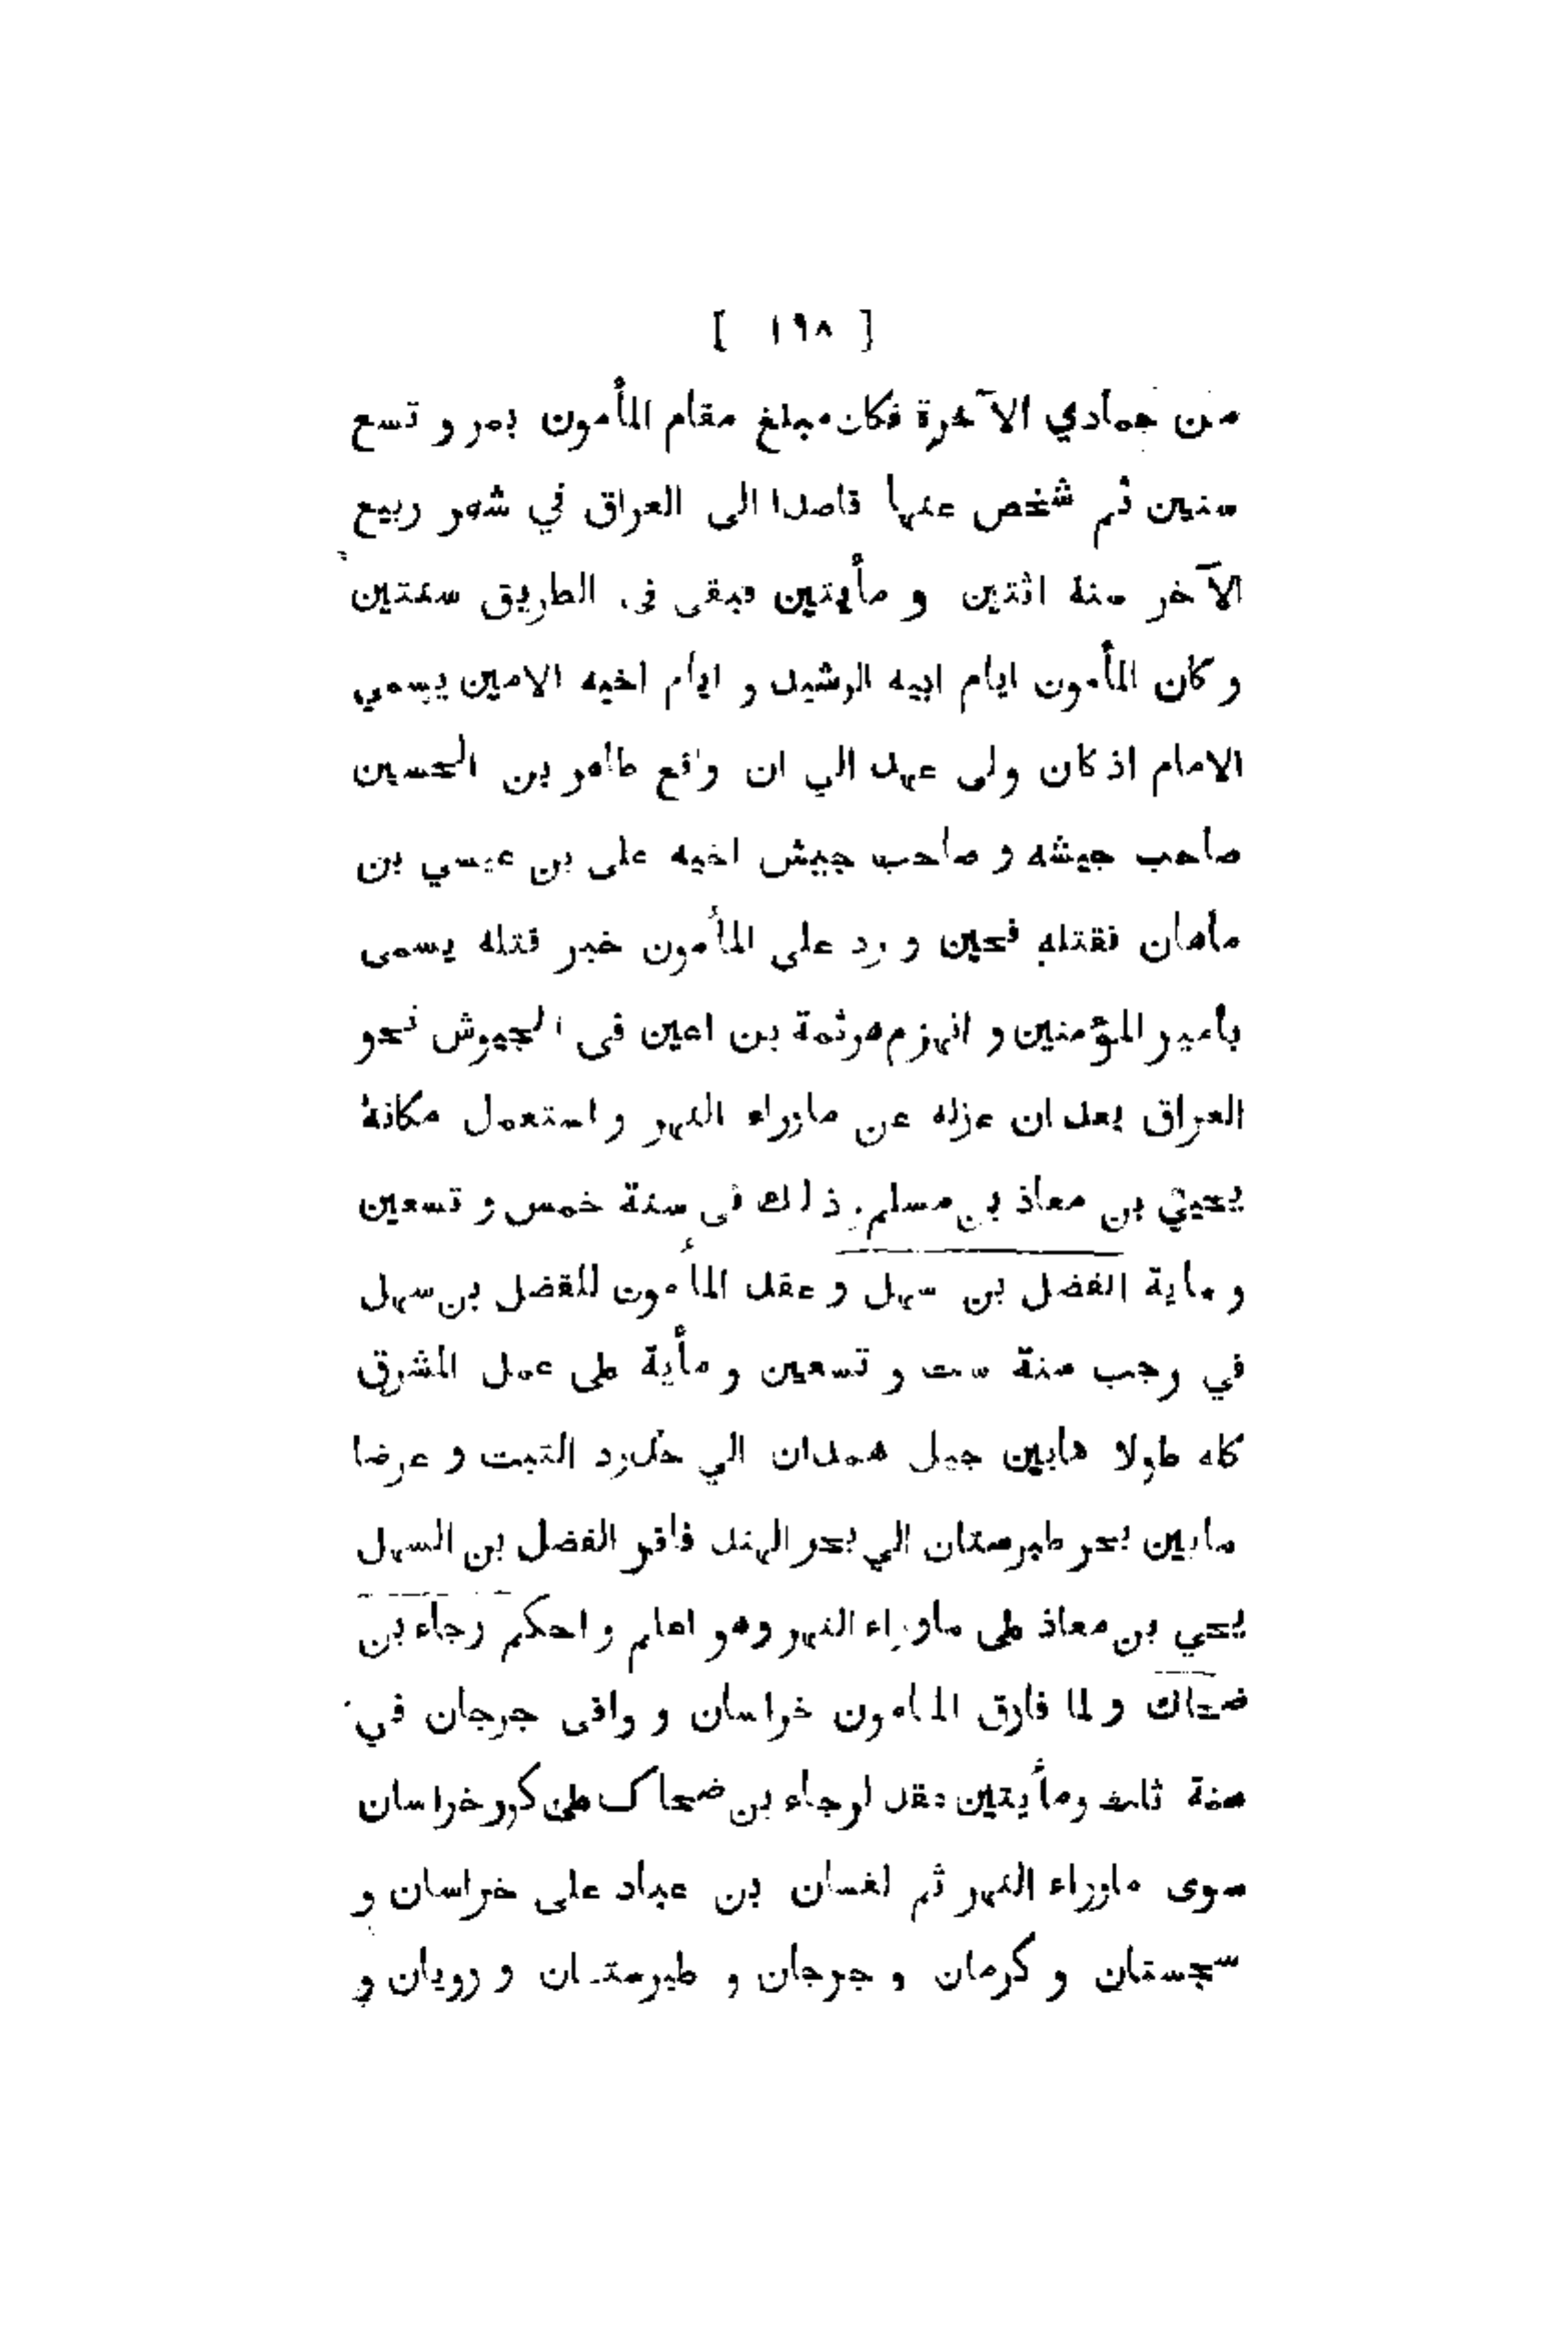 [ ١٩٨ ]
من جمادي الآخرة فكان مبلغ مقام المأمون بمر و تسع
سنين ثم شخص عنها قاصدا الى العراق في شهر ربيع
الآخر سنة اثنتين و مأيتين فبقى فى الطريق سنتين
و كان المأمون ايام ابيه الرشيد و ايام اخيه الامين يسمي
الامام اذ كان ولى عهد الي ان واقع طاهر بن الحسين
صاحب جيشه و صاحب جيش اخيه على بن عيسي بن
ماهان فقتله فحين و رد على المأمون خبر قتله يسمى
بامير المؤمنين و انهزم هرثمة بن اعين فى الجيوش نحو
العراق بعد ان عزله عن ماوراء النهر و استعمل مكانة
يحيي بن معاذ بن مسلم و ذلك فى سنة خمس و تسعين
و ماية الفضل بن سهل و عقد المأمون للفضل بن سهل
في رجب سنة ست و تسعين و مأية على عمل المشرق
كله طولا مابين جبل همدان الي حدود التبت و عرضا
مابين بحر طبرستان الي بحر الهند فاقر الفضل بن السهل
يحي بن معاذ على ماوراء النهر وهو اعلم و احكم رجاء بن
ضحاك و لما فارق المامون خراسان و وافى جرجان في
سنة ثلث ومأيتين عقد لرجاء بن ضحاك على كور خراسان
سوى ماوراء النهر ثم لغسان بن عباد على خراسان و
سجستان و كرمان و جرجان و طبرستان و رويان و